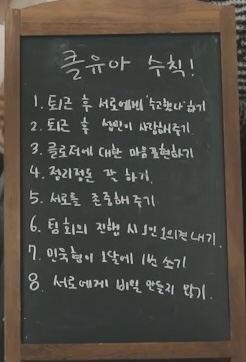 클유아 수칙!
1. 퇴근 후 서로에게 "수고했다" 하기
2. 퇴근 후 성민이 사랑해주기
3. 클로저에 대한 마음 표현하기
4. 정리정돈 잘 하기.
5. 서로를 존중해주기
6. 팀회의 진행 시 1인 1의견 내기.
7. 민욱형이 1달에 1번 쏘기
8. 서로에게 비밀 만들지 않기.